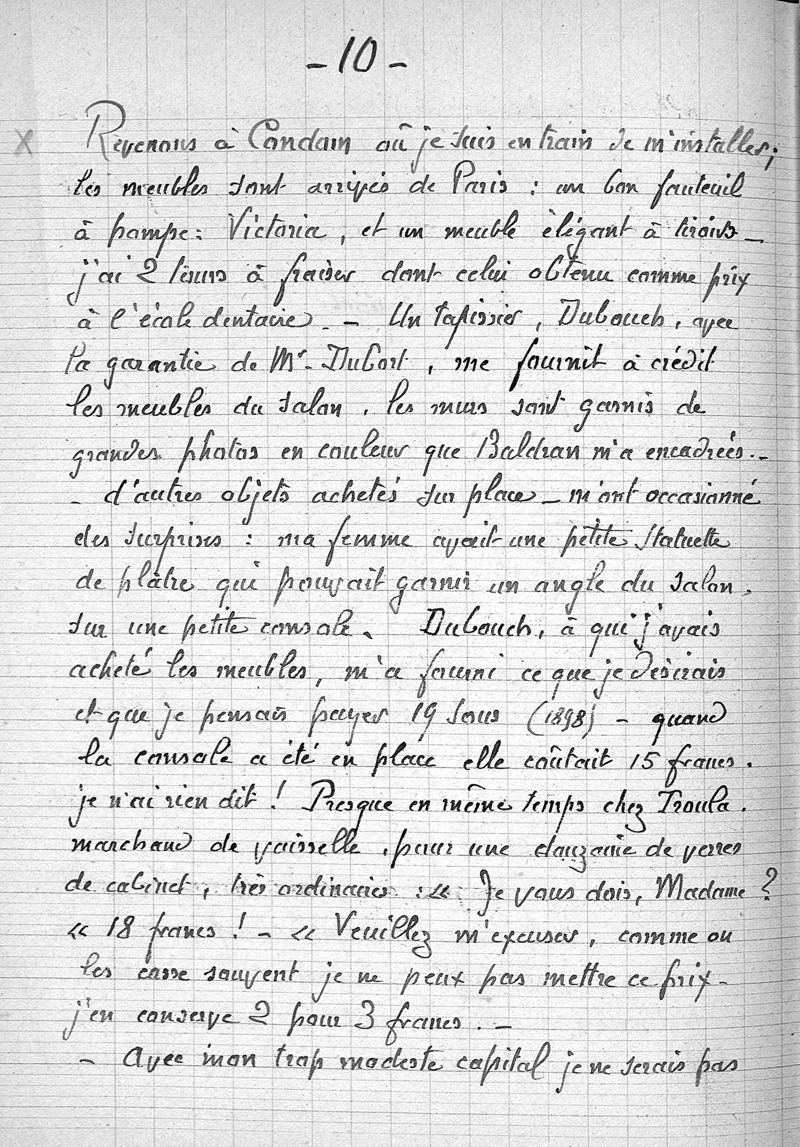 - 10 -
x Revenons à Condom où je suis en train de m'installer;
les meubles sont arrivés de Paris : un bon fauteuil
à pompe : Victoria, et un meuble élégant à tiroirs -
j'ai 2 tours à fraiser dont celui obtenu comme prix
à l'école dentaire - - Un tapissier, Dubouch, avec
la garantie de Mr. Dubort, me fournit à crédit
les meubles du salon. les murs sont garnis de
grandes photos en couleur que Baldran m'a encadrées. -
- d'autres objets achetés sur place - m'ont occasionné
des surprises : ma femme avait une petite statuette
de plâtre qui pouvait garnir un angle du salon,
sur une petite console. Dubouch, à qui j'avais
acheté les meubles, m'a fourni ce que je désirais
et que je pensais payer 19 sous (1898) - quand
la console a été en place elle coûtait 15 francs.
je n'ai rien dit ! Presque en même temps chez Troula.
marchand de vaisselle, pour une douzaine de verres
de cabinet, très ordinaires : « Je vous dois, Madame ?
« 18 francs ! - « Veuillez m'excuser, comme on
les casse souvent je ne peux pas mettre ce prix -
j'en conserve 2 pour 3 francs. -
- Avec mon trop modeste capital je ne serais pas